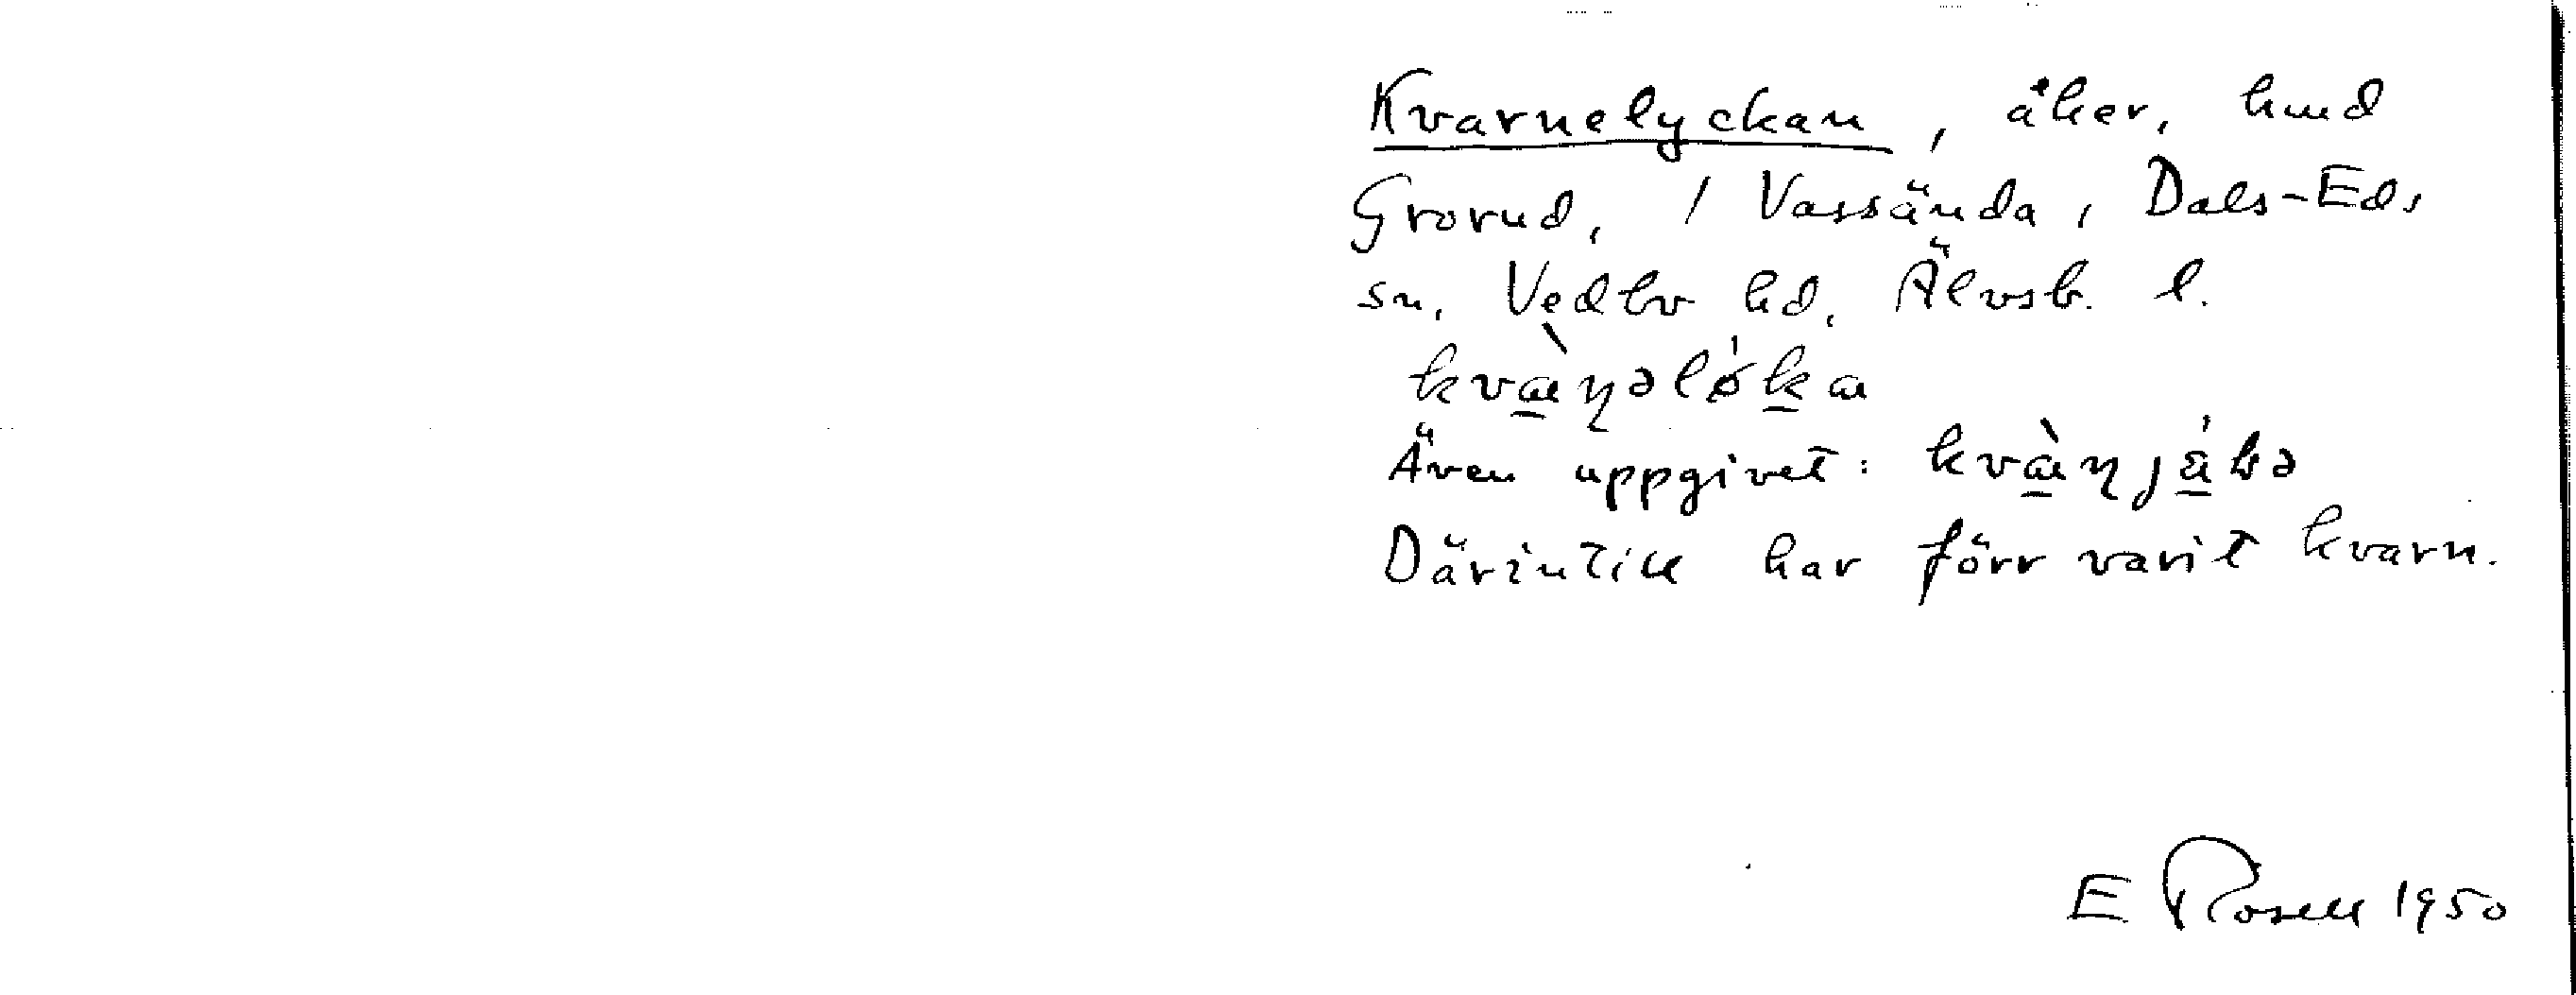 Kvarnelyckan, åker, hmd
Grorud, 1 Vassända, Dals-Eds
sn, Vedbo hd, Älvsb. l.
kvæ̀ɳəlǿka
Även uppgivet: kvæ̀ɳjàbə
Därintill har förr varit kvarn.
E Rosell 1950